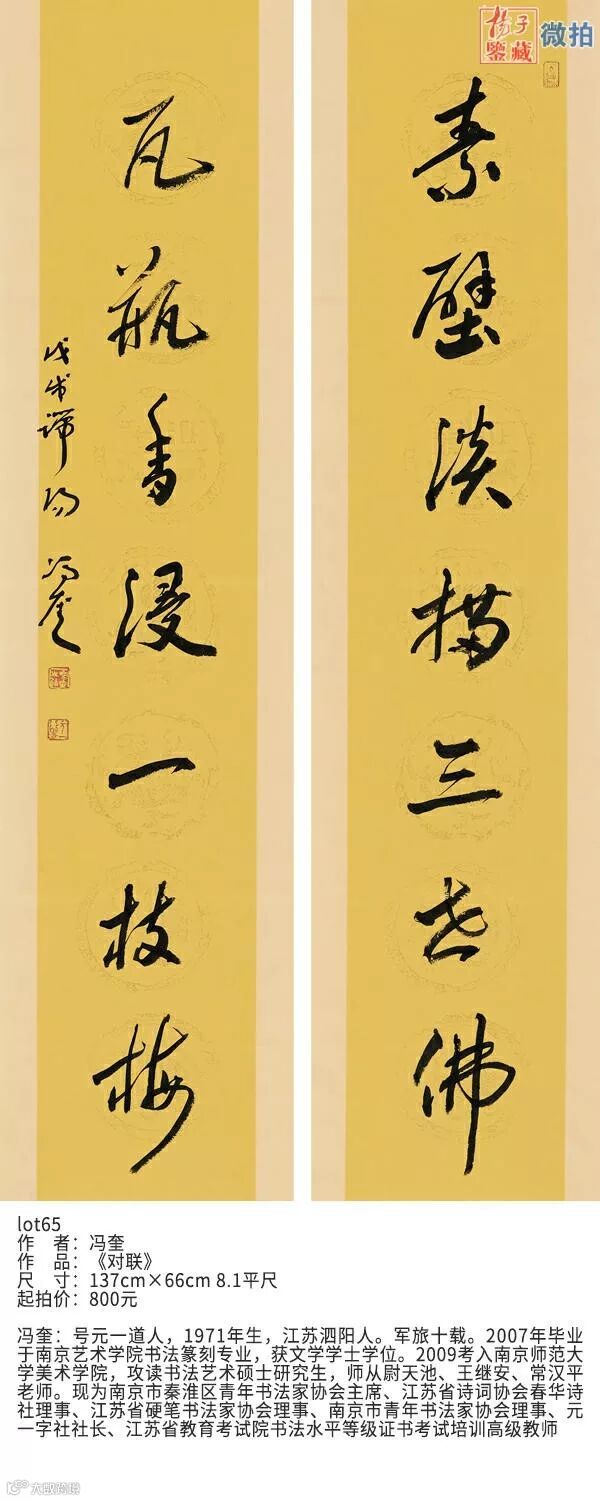 扬子
鉴藏
微拍
素壁淡描三世佛
瓦瓶香浸一枝梅
戊戌端阳 冯奎
lot65
作 者：冯奎
作 品：《对联》
尺 寸：137cm×66cm 8.1平尺
起拍价：800元
冯奎：号元一道人，1971年生，江苏泗阳人。军旅十载。2007年毕业
于南京艺术学院书法篆刻专业，获文学学士学位。2009考入南京师范大
学美术学院，攻读书法艺术硕士研究生，师从尉天池、王继安、常汉平
老师。现为南京市秦淮区青年书法家协会主席、江苏省诗词协会春华诗
社理事、江苏省硬笔书法家协会理事、南京市青年书法家协会理事、元
一字社社长、江苏省教育考试院书法水平等级证书考试培训高级教师
大歐跨境